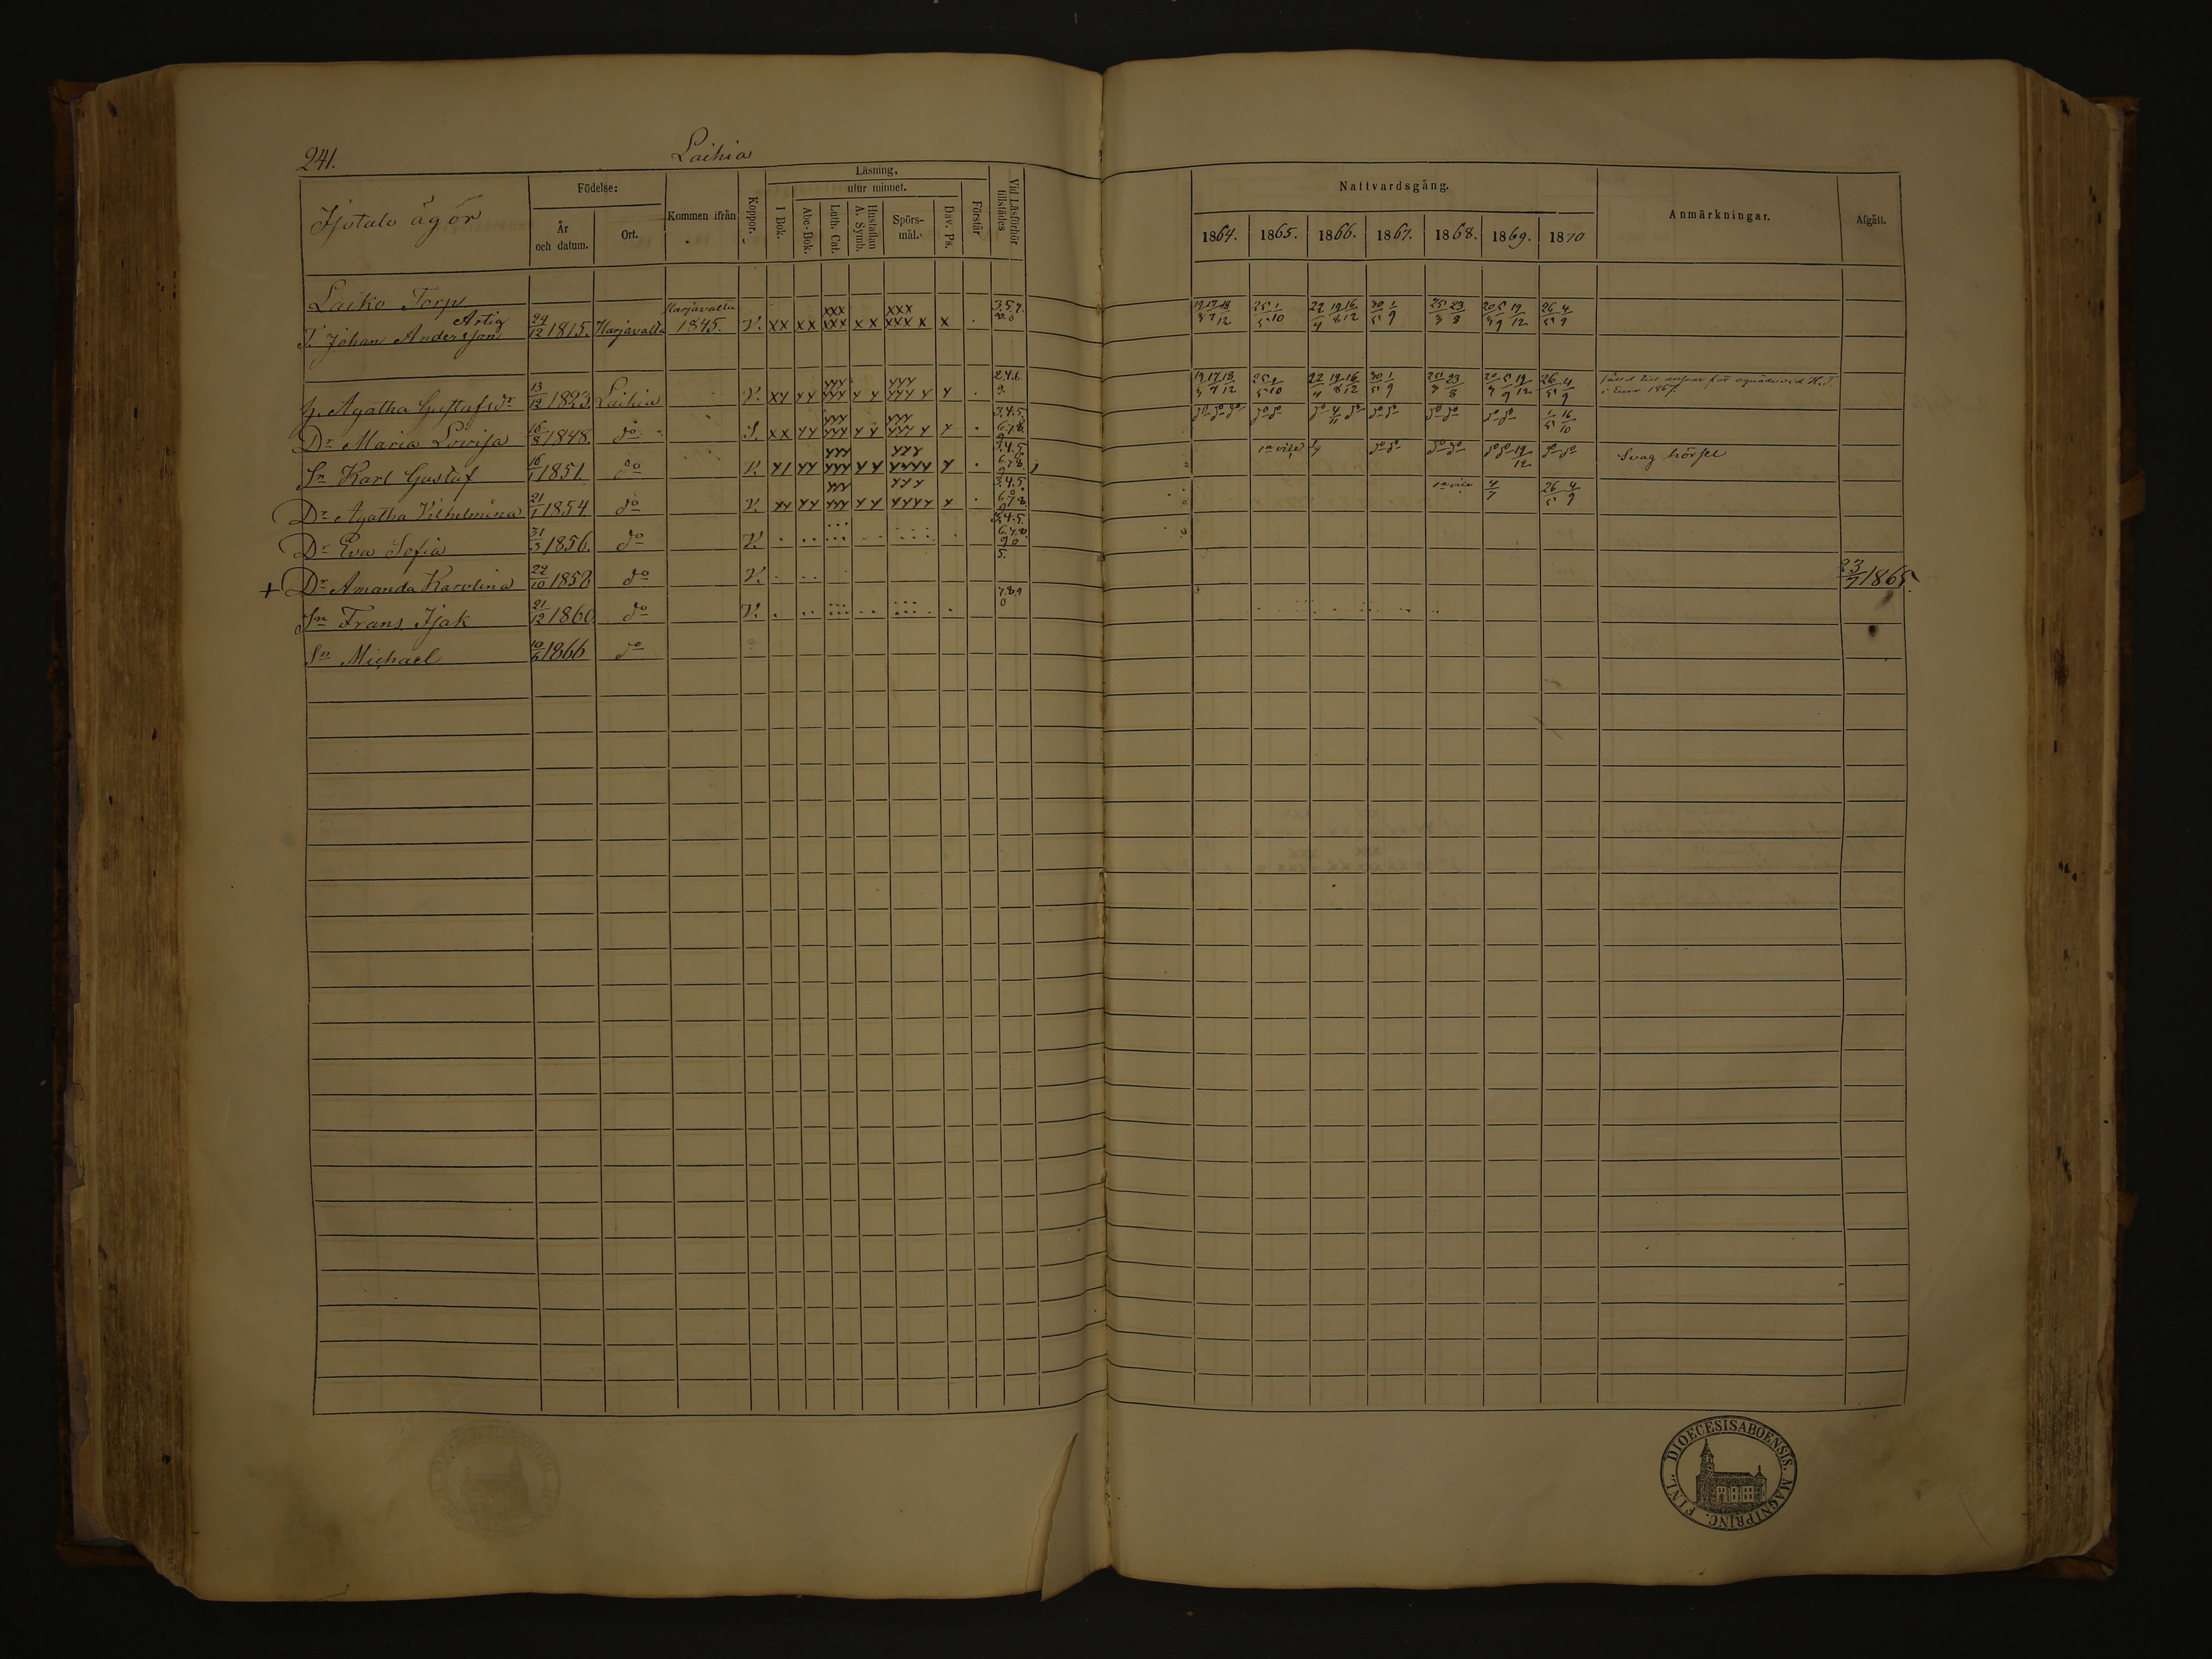 241. Laihia
Isotalo ägor
Födelse:
År och datum.
Ort.
Kommen ifrån
Koppor.
Läsning,
I Bok.
utur minnet.
Abc-Bok.
Luth. Cat.
Hustaflan A. Symb.
Spörsmål.
Dav. Ps.
Förstår
Vid Läsförhör tillstädes
Nattvardsgång.
1864. 1865. 1866. 1867. 1868. 1869. 1870
Anmärkningar.
Afgått.
Laiko Torp
T. Johan Andersson Artig 24/12 1815. Harjavalta Harjavalta 1845. V. xx xx xxx xxx xx xxx xxx x x 19/3 17/7 18/12 25/5 1/10 22/4 19/8 16/12 30/5 1/9 25/3 23/8 20/3 5/9 19/12 26/5 4/9
H. Agatha Gustafsdr 13/12 1823. Laihia V. 2.4.6. 9. 19/3 17/7 18/12 25/5 1/10 22/4 19/8 16/12 30/5 1/9 25/3 23/8 20/3 5/9 19/12 26/5 4/9 i Eura 1867.
Dr Maria Lovisa 16/8 1848. do S. 3.4.5. 6.7.8. 9 do do do do do do 4/11 do do do do do do do 1/5 16/10
Sn Karl Gustaf 16/1 1851. do V. 3.4.5. 6.7.8. 9 1a vice do do do do do do 19/12 do do Svag hörsel
Dr Agatha Vilhelmina 21/1 1854. do V. 3.4.5. 6.7.8. 9 1a vice 4/7 26/5 4/9
Dr Eva Sofia 31/3 1856. do V. 3.4.5. 6.7.8. 9 0
+ Dr Amanda Karolina 22/10 1858 do V. 5. 23/7 1865.
Sn Frans Isak 21/12 1860. do V. 7.8.9 0
Sn Michael 10/5 1866 do
DIOECESIS ABOENSIS. MAGNI PRINC. FINL.